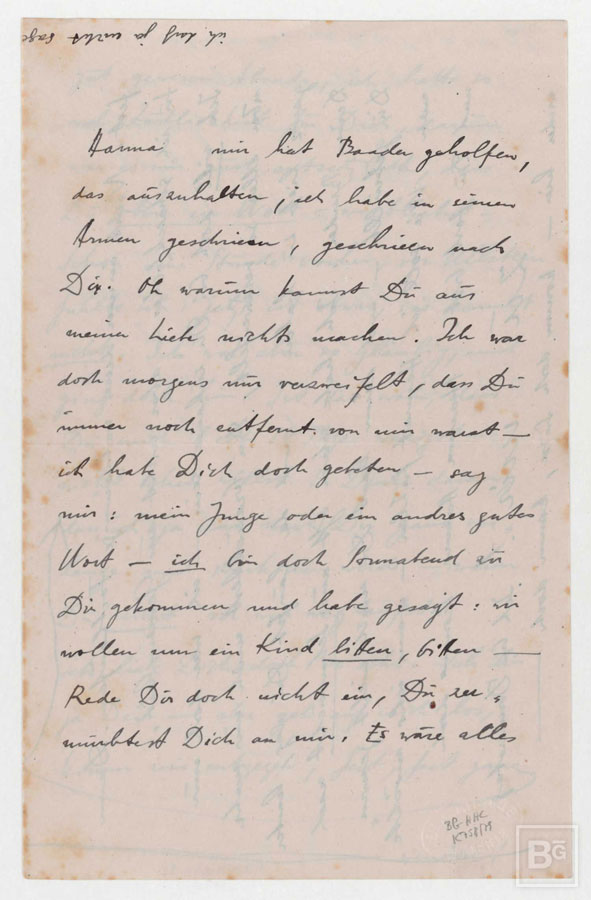 ich darf ja nicht sage
Hanna mir hat Baader geholfen,
das auszuhalten, ich habe in seinen
Armen geschrieen, geschrieen nach
Dir. Oh warum kannst Du aus
meiner Liebe nichts machen. Ich war
doch morgens nur verzweifelt, dass Du
immer noch entfernt von mir warst —
ich habe Dich doch gebeten — sag
mir: mein Junge oder ein andres gutes
Wort — ich bin doch Sonnabend zu
Dir gekommen und habe gesagt: wir
wollen um ein Kind bitten, bitten —
Rede Dir doch nicht ein, Du zer-
mürbtest Dich an mir. Es wäre alles
BG-HHC
K 758/79
BG